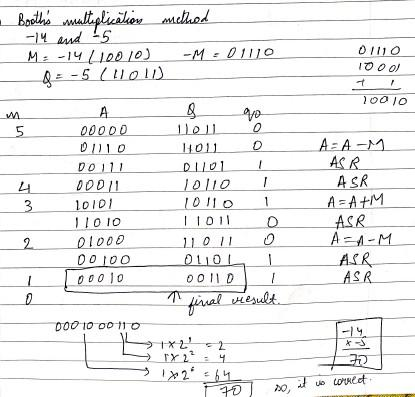 Booth's multiplication method
-14 and -5
M = -14 (10010) -M = 01110
Q = -5 (11011)
01110
10001
+ 1
10010
n A Q q0
5 00000 11011 0
01110 11011 0 A=A-M
00111 01101 1 ASR
4 00011 10110 1 ASR
3 10101 10110 1 A=A+M
11010 11011 0 ASR
2 01000 11011 0 A=A-M
00100 01101 1 ASR
1 00010 00110 1 ASR
0 ↑ final result.
00010 00110
→ 1×2¹ = 2
→ 1×2² = 4
→ 1×2⁶ = 64
70
-14
×-5
70
so, it is correct.